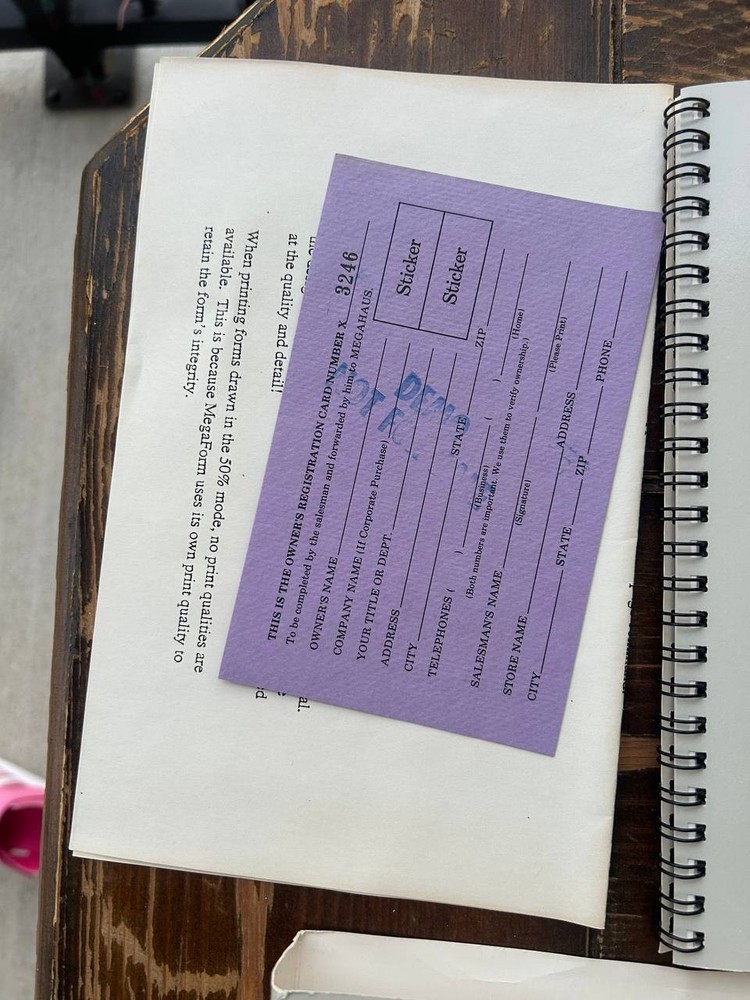 THIS IS THE OWNER'S REGISTRATION CARD NUMBER X 3246
To be completed by the salesman and forwarded by him to MEGAHAUS.
OWNER'S NAME
COMPANY NAME (If Corporate Purchase)
YOUR TITLE OR DEPT.
ADDRESS
CITY STATE ZIP
TELEPHONES ( ) ( )
(Business) (Home)
(Both numbers are important. We use them to verify ownership.)
SALESMAN'S NAME
(Signature) (Please Print)
STORE NAME ADDRESS
CITY STATE ZIP PHONE
Sticker
Sticker
DEMO
NOT
at the quality and detail!
When printing forms drawn in the 50% mode, no print qualities are
available. This is because MegaForm uses its own print quality to
retain the form's integrity.